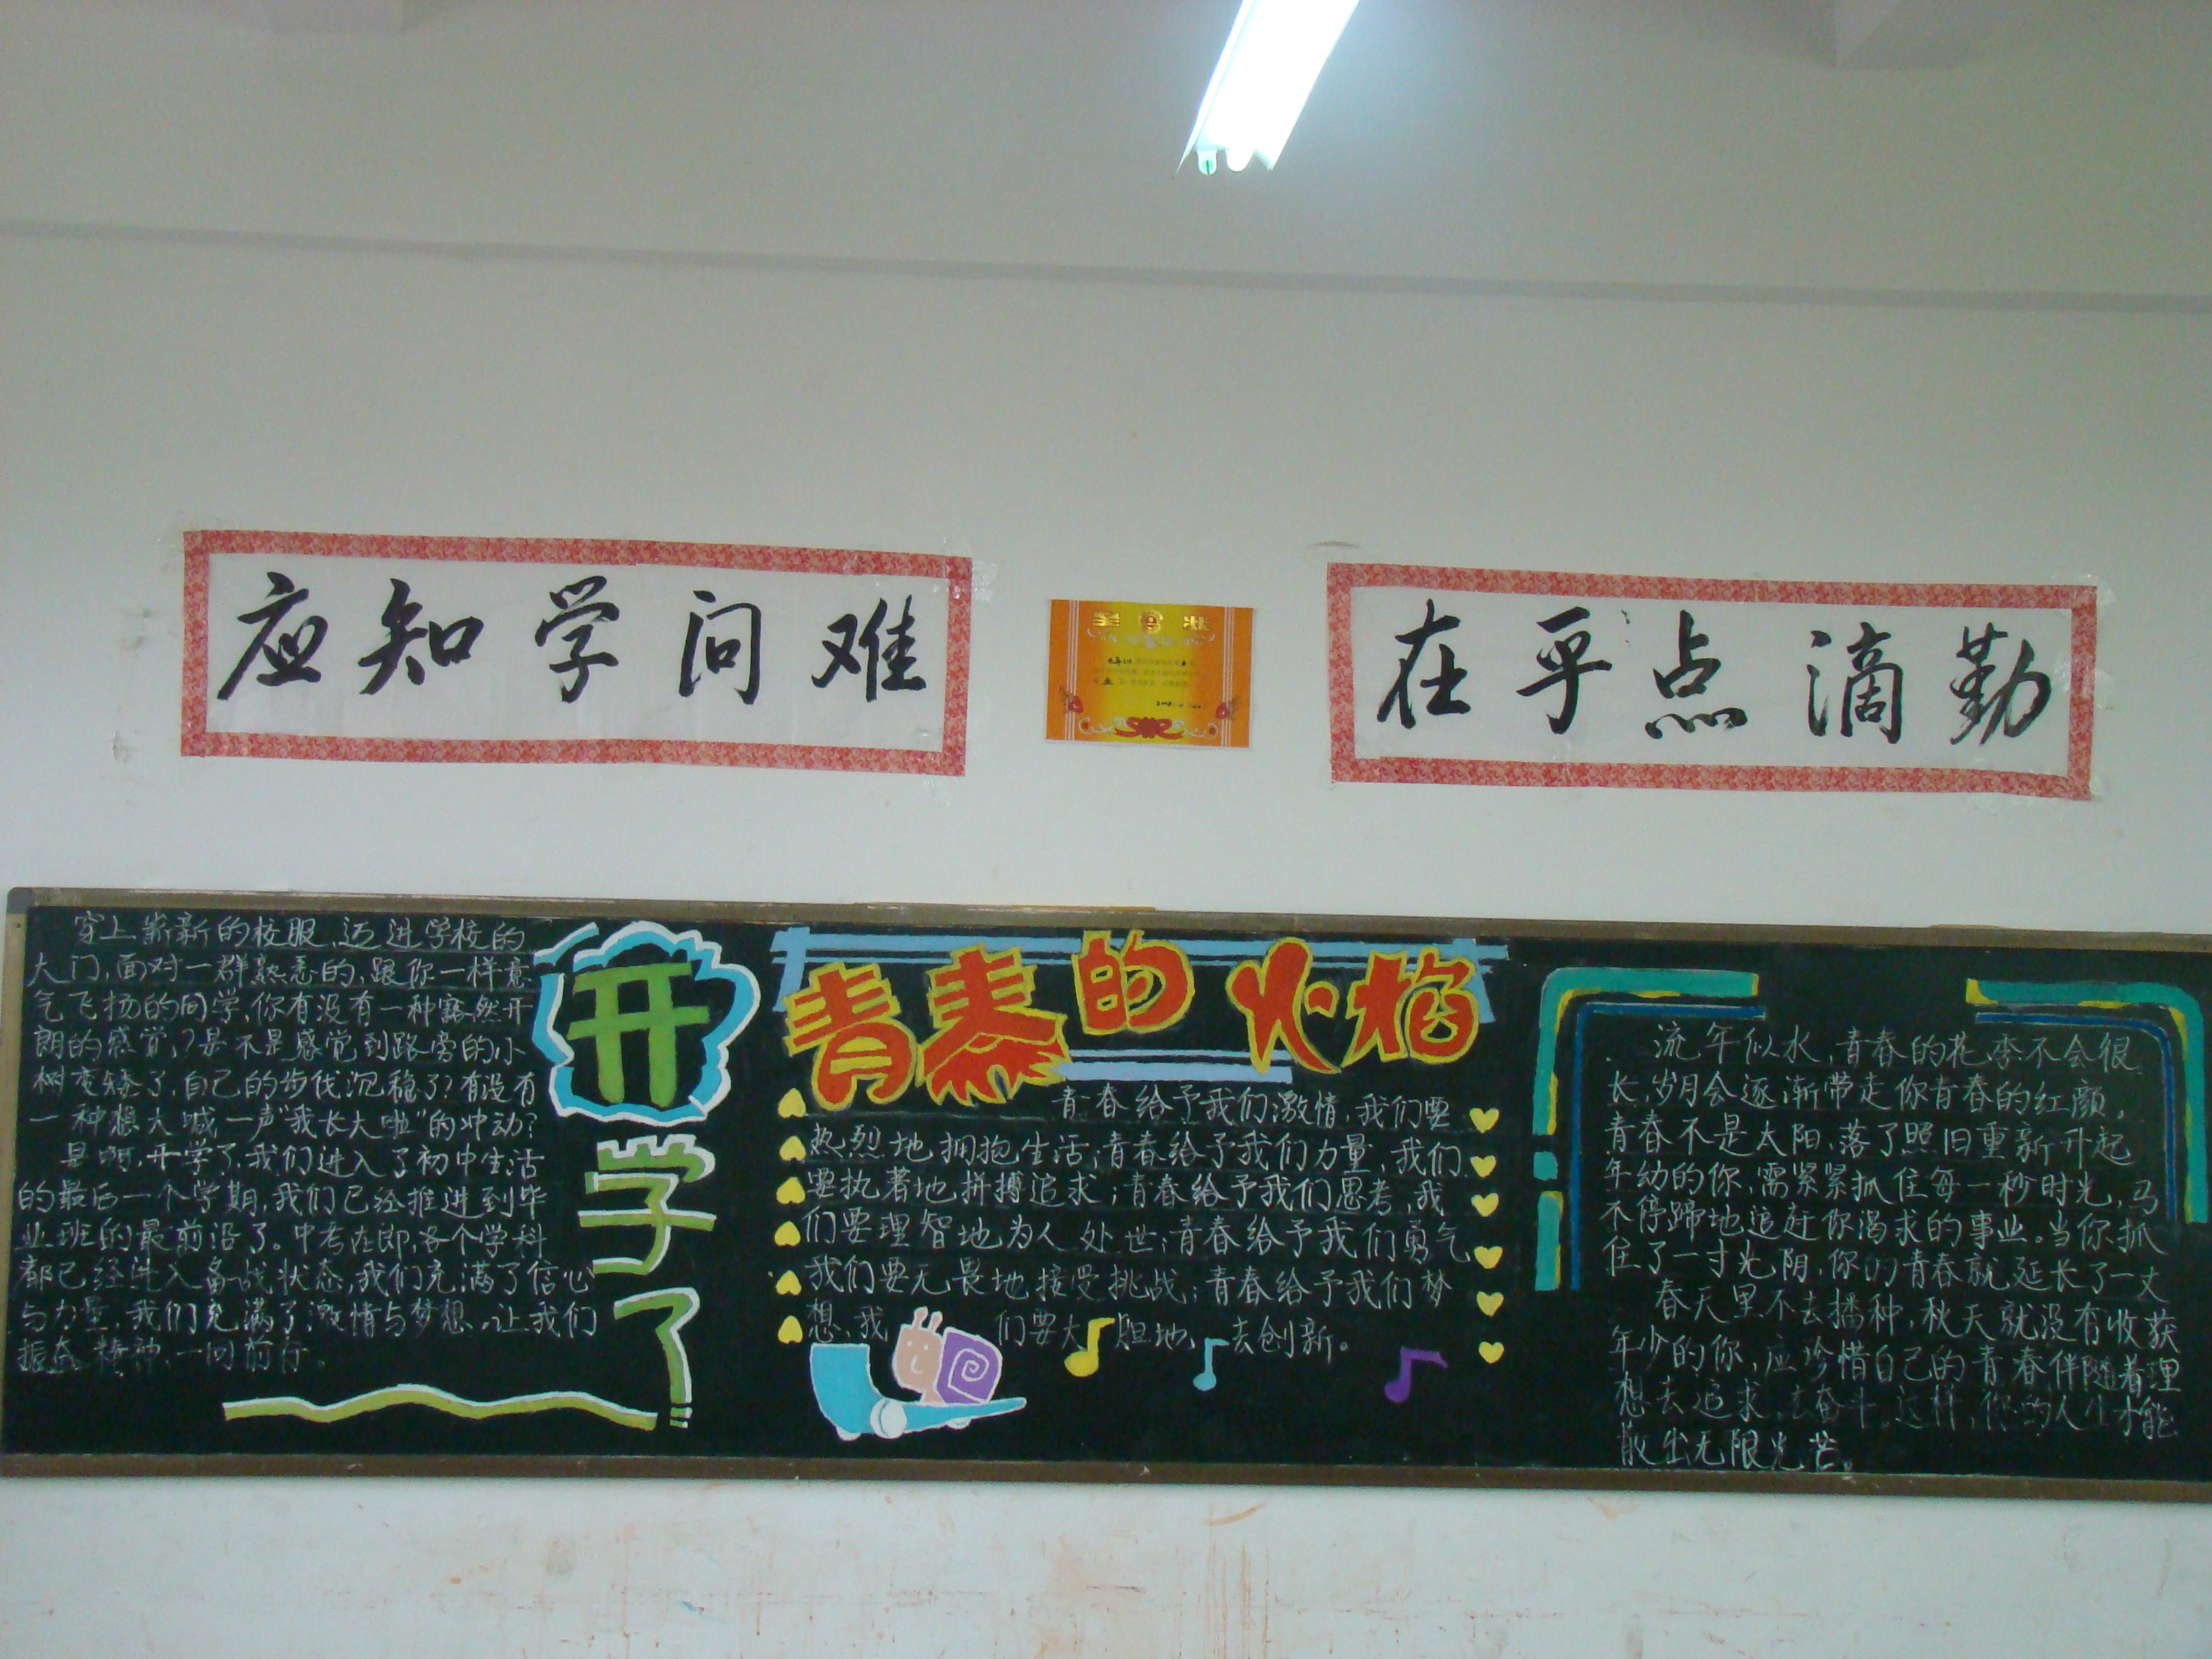 应知学问难
在乎点滴勤
奖状
穿上崭新的校服,迈进学校的
大门,面对一群熟悉的,跟你一样意
气飞扬的同学,你有没有一种豁然开
朗的感觉,?是不是感觉到路旁的小
树变矮了,自己的步伐沉稳了?有没有
一种想大喊一声“我长大啦”的冲动?
是啊,开学了,我们进入了初中生活
的最后一个学期,我们已经推进到毕
业班的最前沿了。中考在即,各个学科
都已经进入备战状态,我们充满了信心
与力量,我们充满了激情与梦想。让我们
振奋精神,一同前行。
开学了
青春的火焰
青春给予我们激情,我们要
热烈地拥抱生活;青春给予我们力量,我们
要执著地拼搏追求;青春给予我们思考,我
们要理智地为人处世;青春给予我们勇气
我们要无畏地接受挑战;青春给予我们梦
想,我们要大胆地,去创新。
流年似水,青春的花季不会很
长,岁月会逐渐带走你青春的红颜,
青春不是太阳,落了照旧重新升起
年幼的你,需紧紧抓住每一秒时光,马
不停蹄地追赶你渴求的事业。当你抓
住了一寸光阴,你的青春就延长了一丈
春天里不去播种,秋天就没有收获
年少的你,应珍惜自己的青春伴随着理
想去追求,去奋斗。这样,你的人生才能
散出无限光芒。